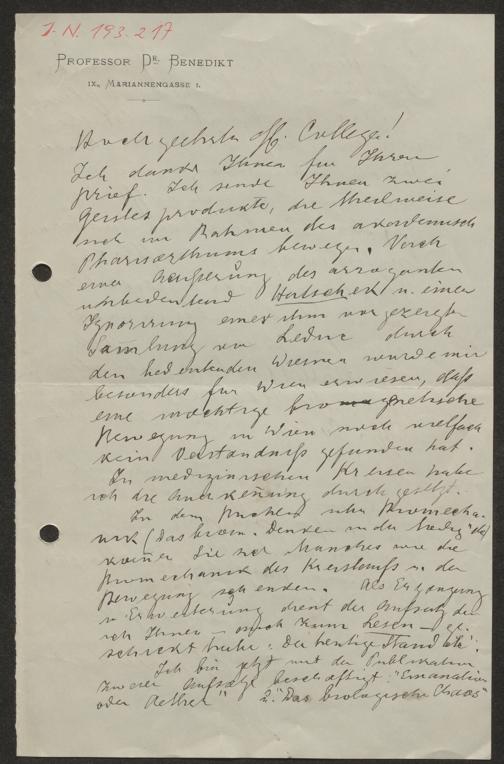 I. N. 193.217
PROFESSOR DR. BENEDIKT
IX., MARIANNENGASSE 1.
Hochgeehrter H. College!
Ich danke Ihnen für Ihren
Brief. Ich sende Ihnen zwei
Geistesprodukte, die theilweise
sich im Rahmen des akademisch
Pharisaerthums bewegen. Durch
eine Äußerung des arroganten
unbedeutend Hatschek u. einen
Ignorirung einer ihm vorgezeigten
Samlung von Leduc durch
den bedeutenden Wiesner wurde mir
besonders für Wien erwiesen, daß
eine mächtige biogenetische
Bewegung in Wien noch vielfach
kein Verständniß gefunden hat.
In medizinischen Kreisen habe
ich die Anerkennung durchgesetzt.
In dem Buche über Biomecha-
nik (Das biom. Denken in der Medizin)
können Sie sich Manches wie die
Biomechanik des Kreislaufs u. der
Bewegung schenken. Als Ergänzung
u Erweiterung dient der Aufsatz den
ich Ihnen – auch zum Lesen – ge-
schickt habe: Der heutige Stand etc.
Ich bin jetzt mit der Publikation
zweier Aufsätze beschäftigt: "Emanation
oder Aether" 2. "Das biologische Chaos"